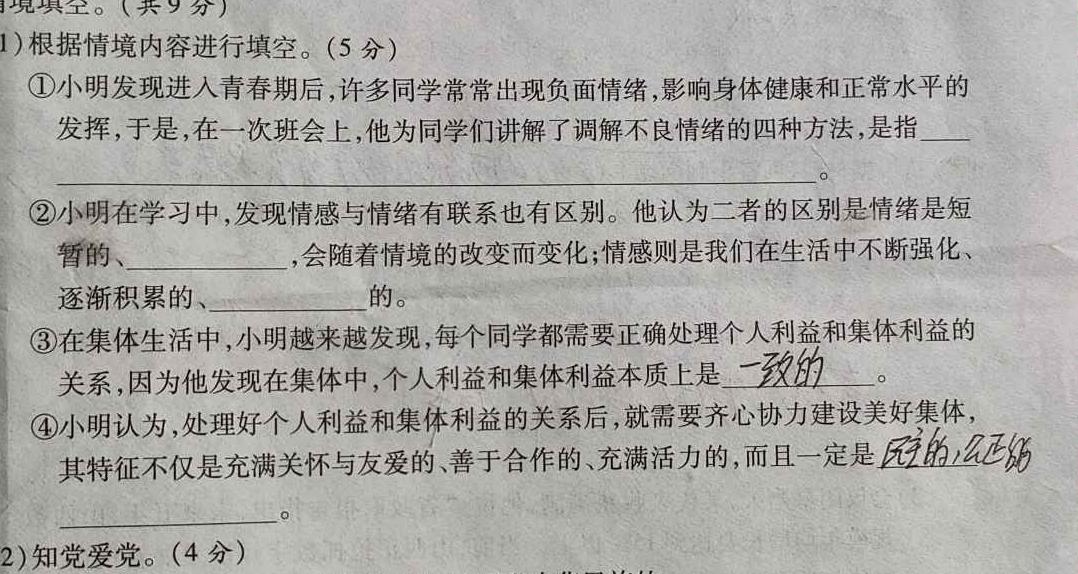 境填空。(共9分)
1)根据情境内容进行填空。(5分)
①小明发现进入青春期后,许多同学常常出现负面情绪,影响身体健康和正常水平的
发挥,于是,在一次班会上,他为同学们讲解了调解不良情绪的四种方法,是指____
____。
②小明在学习中,发现情感与情绪有联系也有区别。他认为二者的区别是情绪是短
暂的、____,会随着情境的改变而变化;情感则是我们在生活中不断强化、
逐渐积累的、____的。
③在集体生活中,小明越来越发现,每个同学都需要正确处理个人利益和集体利益的
关系,因为他发现在集体中,个人利益和集体利益本质上是一致的。
④小明认为,处理好个人利益和集体利益的关系后,就需要齐心协力建设美好集体,
其特征不仅是充满关怀与友爱的、善于合作的、充满活力的,而且一定是民主的,公正的
____。
2)知党爱党。(4分)